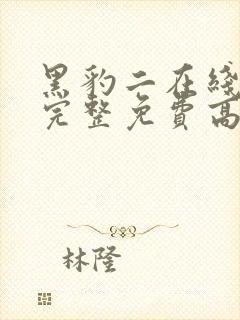 黑豹二在綫
完整免費高
林隆